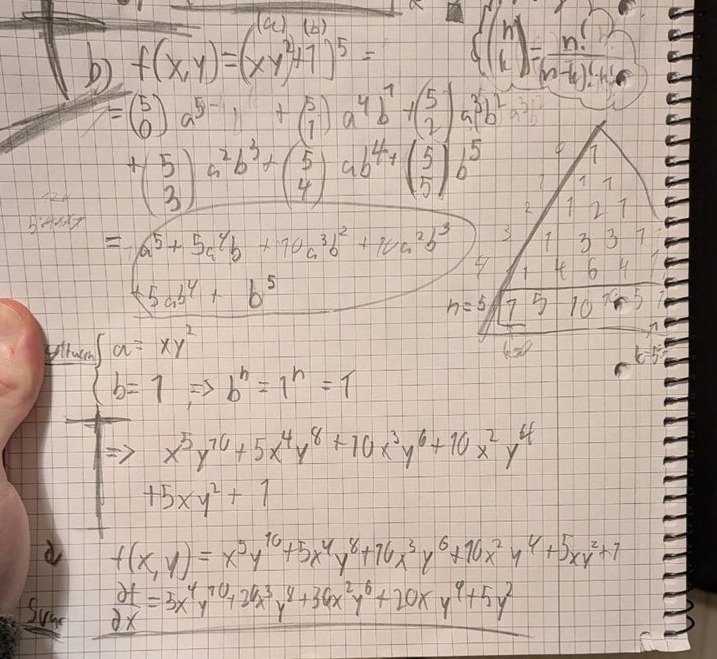 (a) (b)
b) f(x,y)=(xy²+1)⁵ =
{(n k) = n!/(n-k)!·k!
=(5 0) a⁵ + (5 1) a⁴b¹ + (5 2) a³b²
+(5 3) a²b³ + (5 4) ab⁴ + (5 5) b⁵
= a⁵ + 5a⁴b + 10a³b² + 10a²b³
+5ab⁴ + b⁵
0 1
1 1 1
2 1 2 1
3 1 3 3 1
4 1 4 6 4 1
n=5 1 5 10 10 5 1
k=0 k=5
{ a = xy²
b = 1 => bⁿ = 1ⁿ = 1
=> x⁵y¹⁰ + 5x⁴y⁸ + 10x³y⁶ + 10x²y⁴
+5xy² + 1
f(x,y) = x⁵y¹⁰+5x⁴y⁸+10x³y⁶+10x²y⁴+5xy²+1
∂f/∂x = 5x⁴y¹⁰+20x³y⁸+30x²y⁶+20xy⁴+5y²
Svar